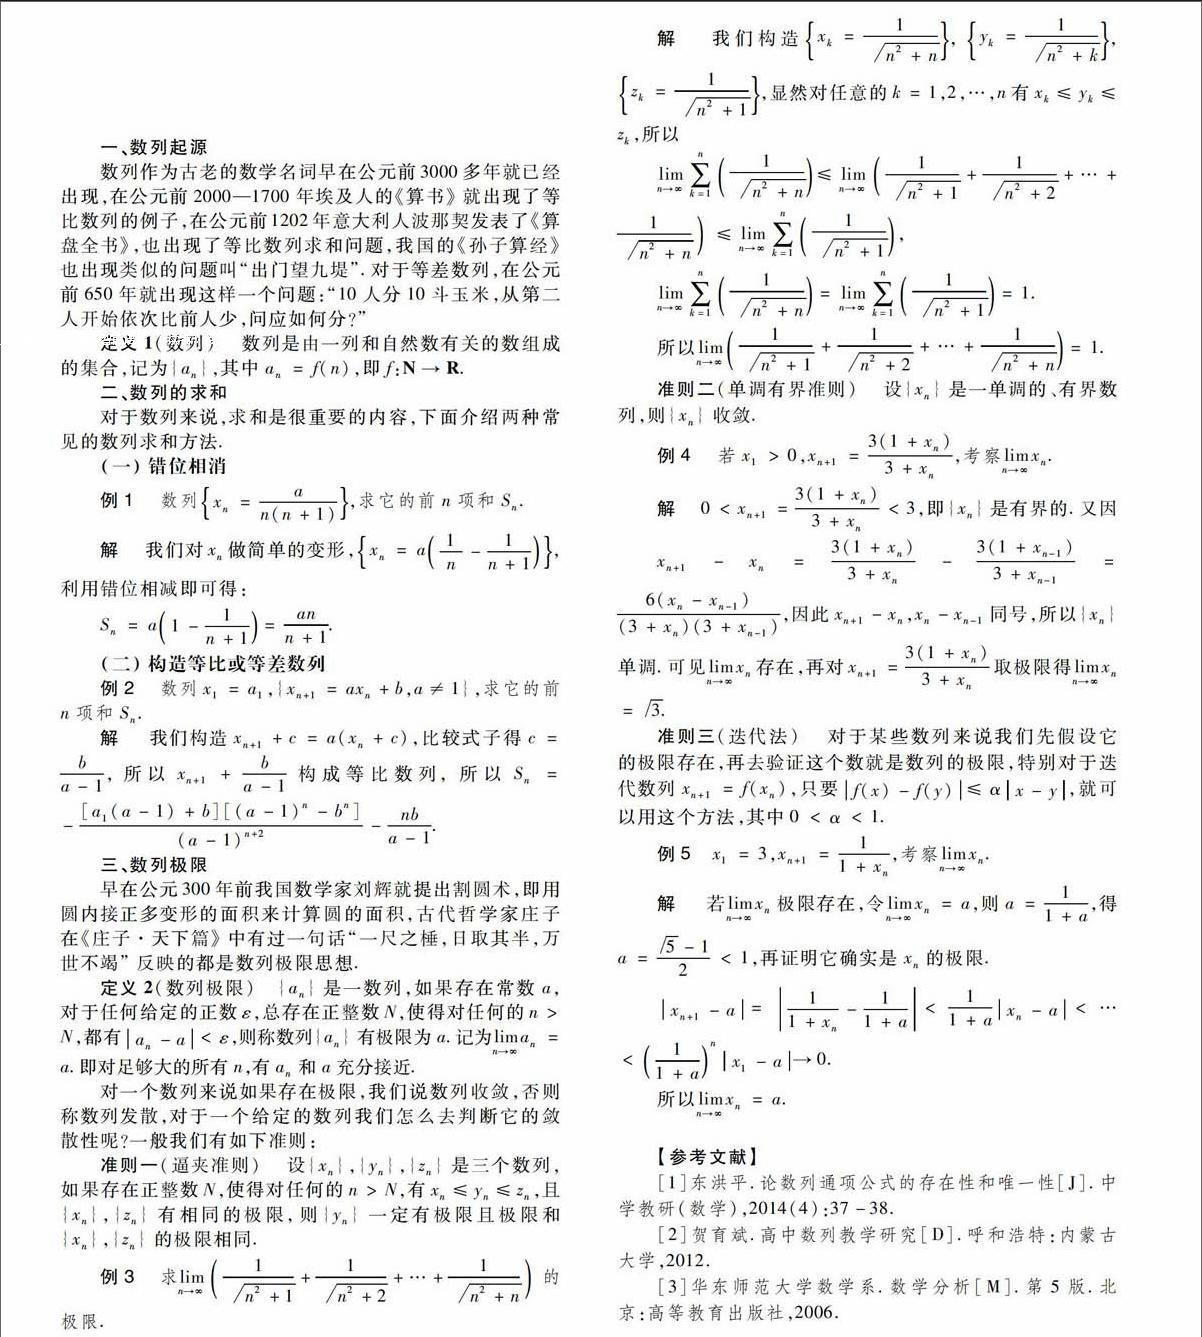 一、数列起源
数列作为古老的数学名词早在公元前3000多年就已经
出现,在公元前2000—1700年埃及人的《算书》就出现了等
比数列的例子,在公元前1202年意大利人波那契发表了《算
盘全书》,也出现了等比数列求和问题,我国的《孙子算经》
也出现类似的问题叫“出门望九堤”.对于等差数列,在公元
前650年就出现这样一个问题:“10人分10斗玉米,从第二
人开始依次比前人少,问应如何分?”
定义1(数列) 数列是由一列和自然数有关的数组成
的集合,记为{aₙ},其中 aₙ = f(n),即 f:N → R.
二、数列的求和
对于数列来说,求和是很重要的内容,下面介绍两种常
见的数列求和方法.
(一)错位相消
例1 数列{xₙ = a/(n(n + 1))},求它的前 n 项和 Sₙ.
解 我们对 xₙ 做简单的变形,{xₙ = a(1/n - 1/(n + 1))},
利用错位相减即可得:
Sₙ = a(1 - 1/(n + 1)) = an/(n + 1).
(二)构造等比或等差数列
例2 数列 x₁ = a₁,{xₙ₊₁ = axₙ + b,a ≠ 1},求它的前
n 项和 Sₙ.
解 我们构造 xₙ₊₁ + c = a(xₙ + c),比较式子得 c =
b/(a - 1), 所以 xₙ₊₁ + b/(a - 1) 构成等比数列, 所以 Sₙ =
- [a₁(a - 1) + b][(a - 1)ⁿ - bⁿ]/(a - 1)ⁿ⁺² - nb/(a - 1).
三、数列极限
早在公元300年前我国数学家刘辉就提出割圆术,即用
圆内接正多变形的面积来计算圆的面积,古代哲学家庄子
在《庄子·天下篇》中有过一句话“一尺之棰,日取其半,万
世不竭”反映的都是数列极限思想.
定义2(数列极限) {aₙ} 是一数列,如果存在常数 a,
对于任何给定的正数 ε,总存在正整数 N,使得对任何的 n >
N,都有|aₙ - a| < ε,则称数列{aₙ} 有极限为 a. 记为 lim(n→∞) aₙ =
a. 即对足够大的所有 n,有 aₙ 和 a 充分接近.
对一个数列来说如果存在极限,我们说数列收敛,否则
称数列发散,对于一个给定的数列我们怎么去判断它的敛
散性呢?一般我们有如下准则:
准则一(逼夹准则) 设{xₙ},{yₙ},{zₙ} 是三个数列,
如果存在正整数 N,使得对任何的 n > N,有 xₙ ≤ yₙ ≤ zₙ,且
{xₙ},{zₙ} 有相同的极限, 则{yₙ} 一定有极限且极限和
{xₙ},{zₙ} 的极限相同.
例3 求 lim(n→∞) (1/√(n² + 1) + 1/√(n² + 2) + ⋯ + 1/√(n² + n)) 的
极限.
解 我们构造{xₖ = 1/√(n² + n)}, {yₖ = 1/√(n² + k)},
{zₖ = 1/√(n² + 1)},显然对任意的 k = 1,2,⋯,n 有 xₖ ≤ yₖ ≤
zₖ,所以
lim(n→∞) ∑(k=1→n) (1/√(n² + n)) ≤ lim(n→∞) (1/√(n² + 1) + 1/√(n² + 2) + ⋯ +
1/√(n² + n)) ≤ lim(n→∞) ∑(k=1→n) (1/√(n² + 1)),
lim(n→∞) ∑(k=1→n) (1/√(n² + n)) = lim(n→∞) ∑(k=1→n) (1/√(n² + 1)) = 1.
所以 lim(n→∞) (1/√(n² + 1) + 1/√(n² + 2) + ⋯ + 1/√(n² + n)) = 1.
准则二(单调有界准则) 设{xₙ} 是一单调的、有界数
列,则{xₙ} 收敛.
例4 若 x₁ > 0,xₙ₊₁ = 3(1 + xₙ)/(3 + xₙ),考察 lim(n→∞) xₙ.
解 0 < xₙ₊₁ = 3(1 + xₙ)/(3 + xₙ) < 3,即{xₙ} 是有界的. 又因
xₙ₊₁ - xₙ = 3(1 + xₙ)/(3 + xₙ) - 3(1 + xₙ₋₁)/(3 + xₙ₋₁) =
6(xₙ - xₙ₋₁)/((3 + xₙ)(3 + xₙ₋₁)),因此 xₙ₊₁ - xₙ,xₙ - xₙ₋₁ 同号,所以{xₙ}
单调. 可见 lim(n→∞) xₙ 存在,再对 xₙ₊₁ = 3(1 + xₙ)/(3 + xₙ) 取极限得 lim(n→∞) xₙ
= √3.
准则三(迭代法) 对于某些数列来说我们先假设它
的极限存在,再去验证这个数就是数列的极限,特别对于迭
代数列 xₙ₊₁ = f(xₙ),只要|f(x) - f(y)| ≤ α|x - y|,就可
以用这个方法,其中 0 < α < 1.
例5 x₁ = 3,xₙ₊₁ = 1/(1 + xₙ),考察 lim(n→∞) xₙ.
解 若 lim(n→∞) xₙ 极限存在,令 lim(n→∞) xₙ = a,则 a = 1/(1 + a),得
a = (√5 - 1)/2 < 1,再证明它确实是 xₙ 的极限.
|xₙ₊₁ - a| = |1/(1 + xₙ) - 1/(1 + a)| < 1/(1 + a)|xₙ - a| < ⋯
< (1/(1 + a))ⁿ|x₁ - a| → 0.
所以 lim(n→∞) xₙ = a.
【参考文献】
[1]东洪平.论数列通项公式的存在性和唯一性[J].中
学教研(数学),2014(4):37-38.
[2]贺育斌.高中数列教学研究[D].呼和浩特:内蒙古
大学,2012.
[3]华东师范大学数学系.数学分析[M].第5版.北
京:高等教育出版社,2006.